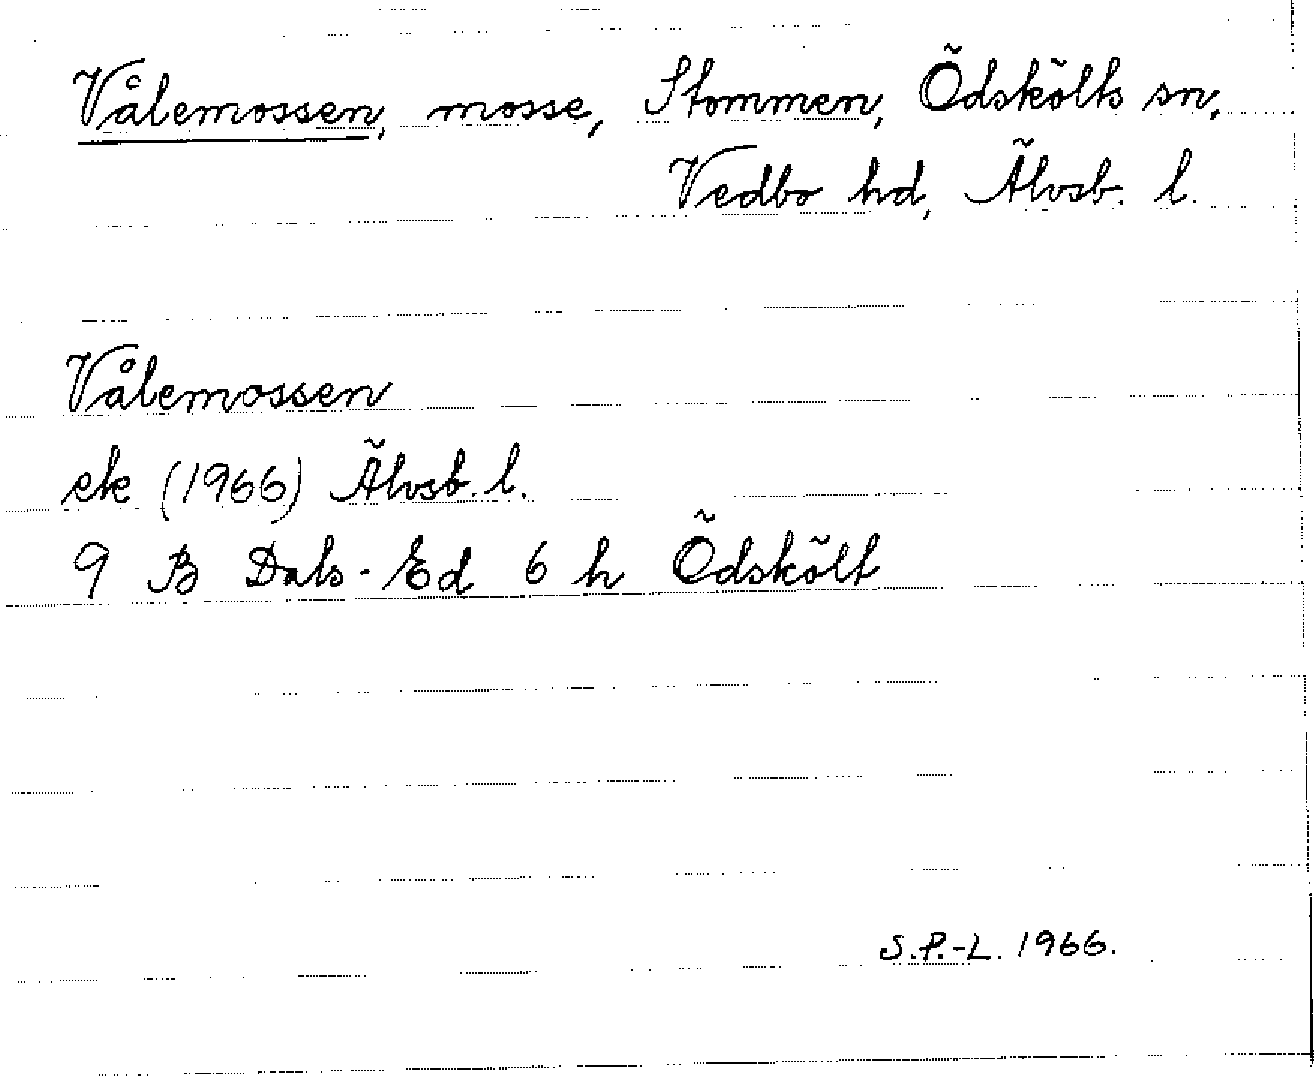 Vålemossen, mosse, Stommen, Ödskölts sn,
Vedbo hd, Älvsb. l.
Vålemossen
ek (1966) Älvsb. l.
9 B Dals-Ed 6 h Ödskölt
S.P.-L. 1966.